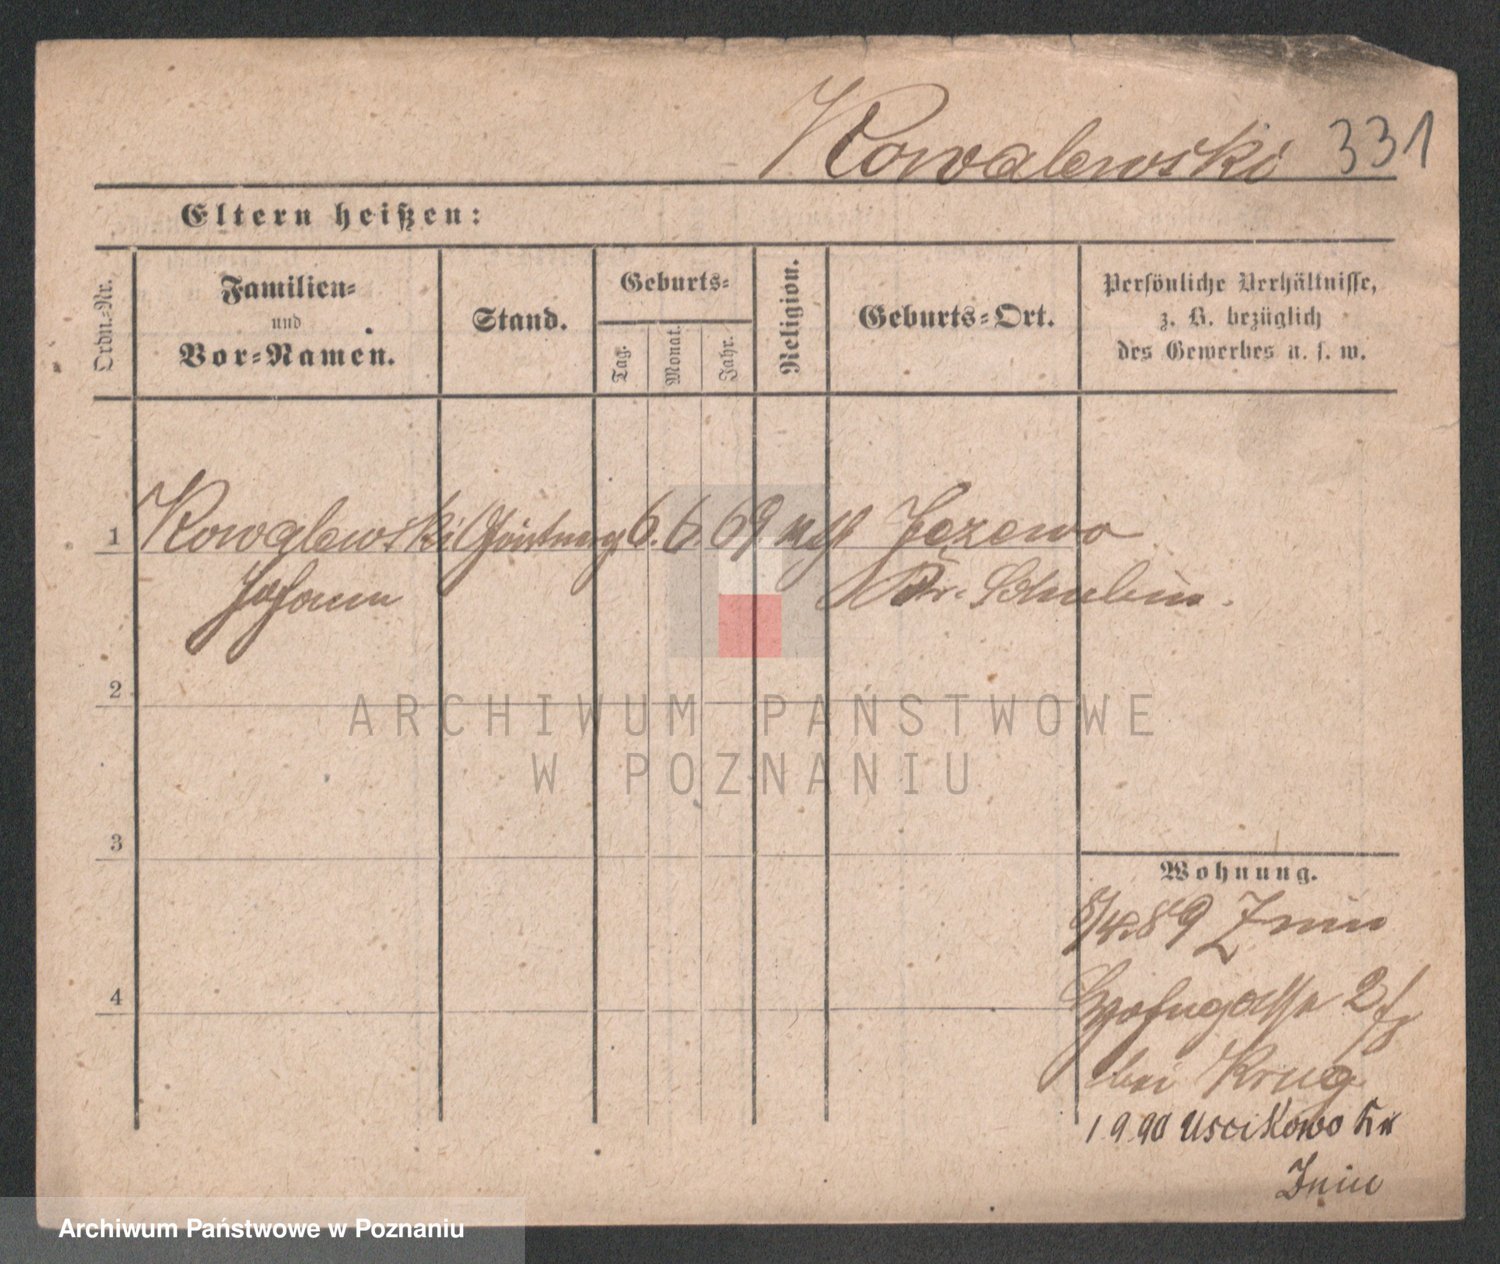 Kowalewski 331
Eltern heißen:
Ordn.-Nr.
Familien-
und
Vor-Namen.
Stand.
Geburts-
Tag.
Monat.
Jahr.
Religion.
Geburts-Ort.
Persönliche Verhältnisse,
z. B. bezüglich
des Gewerbes u. s. w.
1 Kowalewski 6. 6 69 kth Jezewo
Johann Kr. Schubin.
2
ARCHIWUM PAŃSTWOWE
W POZNANIU
3
Wohnung.
8/4 89 Znin
4
2
bei Krug
1 9 90 Uscikowo Kr
Znin
Archiwum Państwowe w Poznaniu